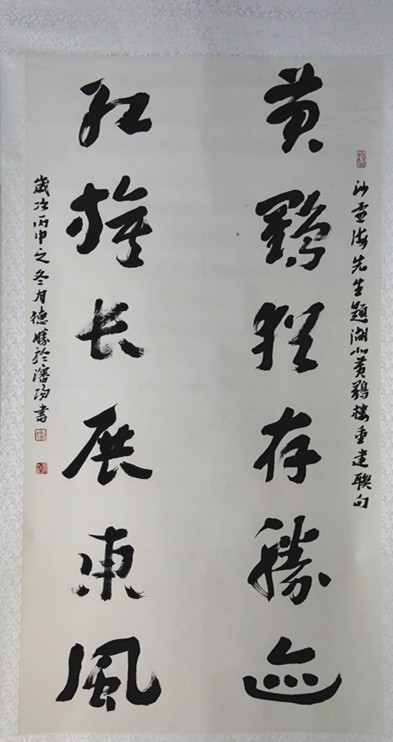 沙孟海先生題湖北黄鶴樓重建聯句
黄鶴猶存勝迹
红旗长展東風
歲次丙申之冬月德勝於瀋陽書